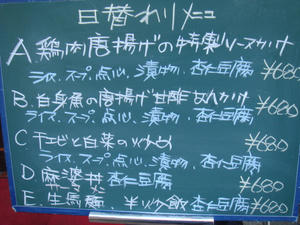 日替わりメニュー
A. 鶏肉唐揚げの特製ソースかけ
ライス、スープ、点心、漬物、杏仁豆腐 ¥680
B. 白身魚の唐揚げ甘酢あんかけ
ライス、スープ、点心、漬物、杏仁豆腐 ¥680
C 干エビと白菜の炒め
ライス、スープ、点心、漬物、杏仁豆腐 ¥680
D 麻婆丼 杏仁豆腐 ¥680
E. 生馬麺、半炒飯 杏仁豆腐 ¥680